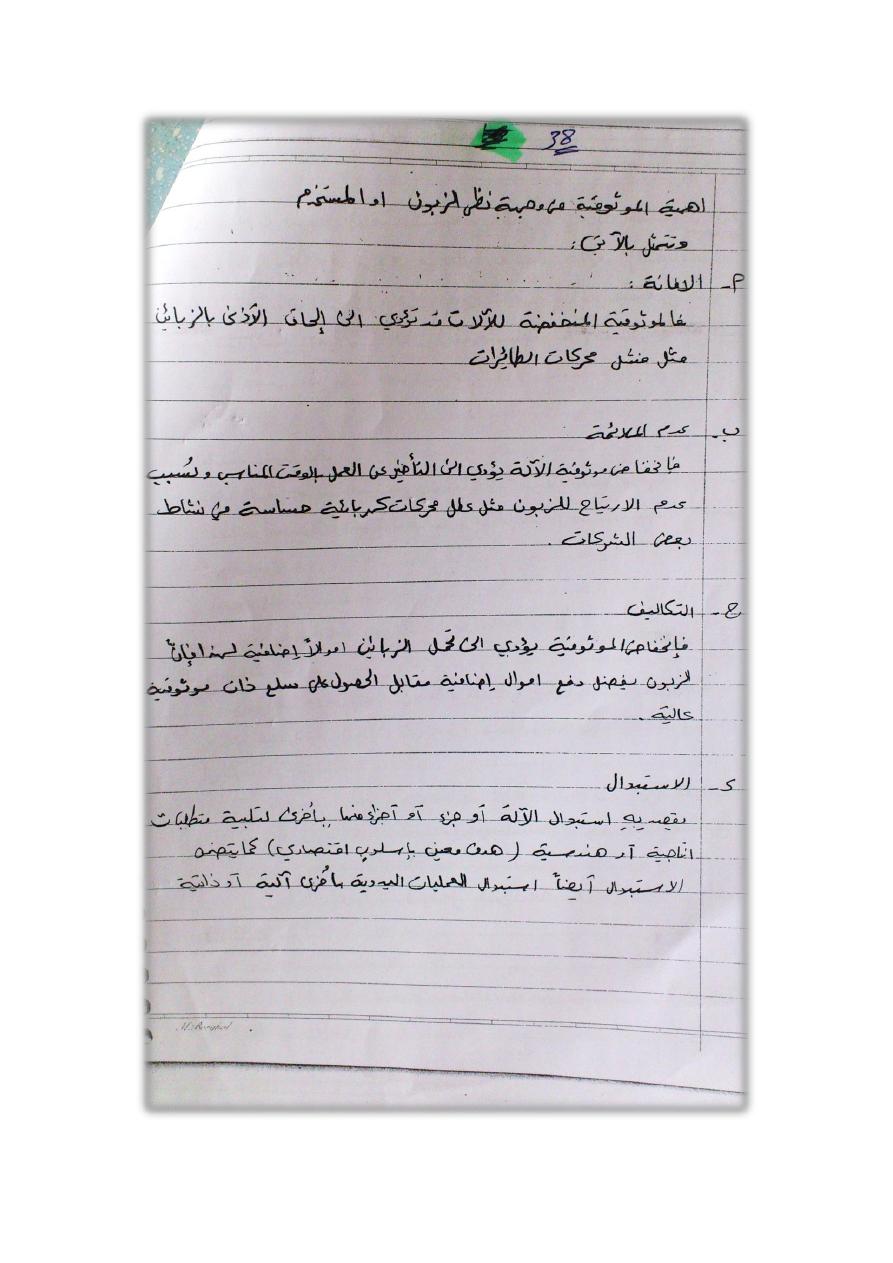 38
اهمية الموثوقية من وجهة نظر الزبون او المستخدم
وتتمثل بالآتي:
أ- الامانة :
فالموثوقية المنخفضة للآلات قد تؤدي الى إلحاق الأذى بالزبائن
مثل فشل محركات الطائرات
ب- عدم الملائمة
فإنخفاض موثوقية الآلة يؤدي الى التأخير عن العمل بالوقت المناسب ويُسبب
عدم الارتياح للزبون مثل عطل محركات كهربائية حساسة من نشاط
بعض الشركات .
ج- التكاليف
فإنخفاض الموثوقية يؤدي الى تحمل الزبائن اموالاً إضافية لهذا فإن
لزبون يفضل دفع اموال إضافية مقابل الحصول على سلع ذات موثوقية
عالية .
د- الاستبدال
يقصد به استبدال الآلة أو جزء أو أجزاء منها بأخرى لتلبية متطلبات
انتاجية أو هندسية (هدف معين بإسلوب اقتصادي) كما يتضمن
الاستبدال أيضاً استبدال العمليات اليدوية بأخرى آلية أو ذاتية